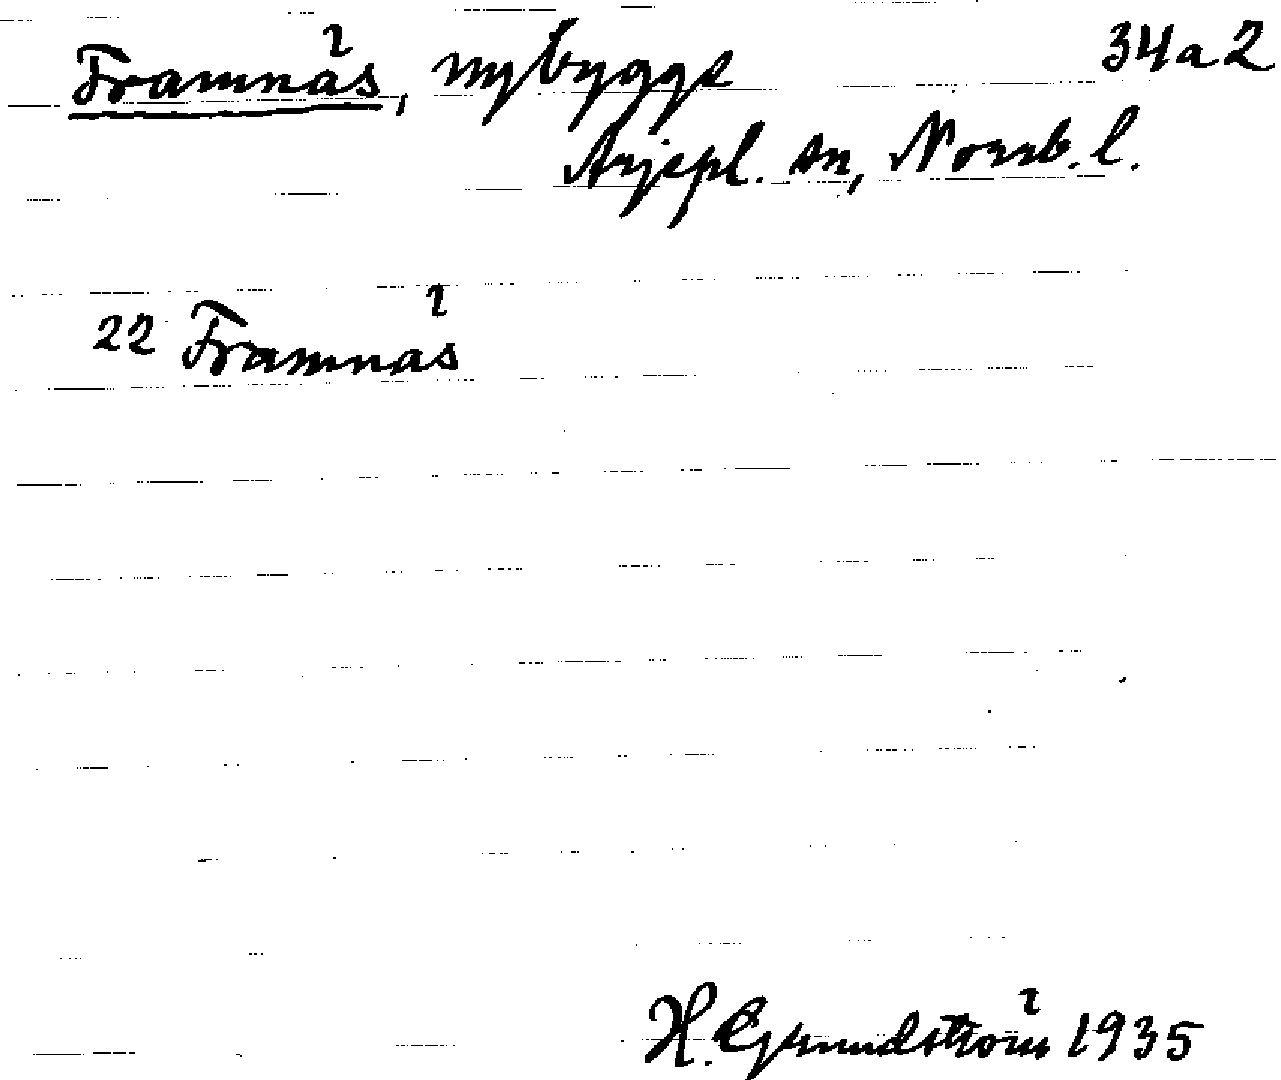 Framnäs, nybygge 34a2
Arjepl. sn, Norrb. l.
22 Framnäs
H. Grundström 1935